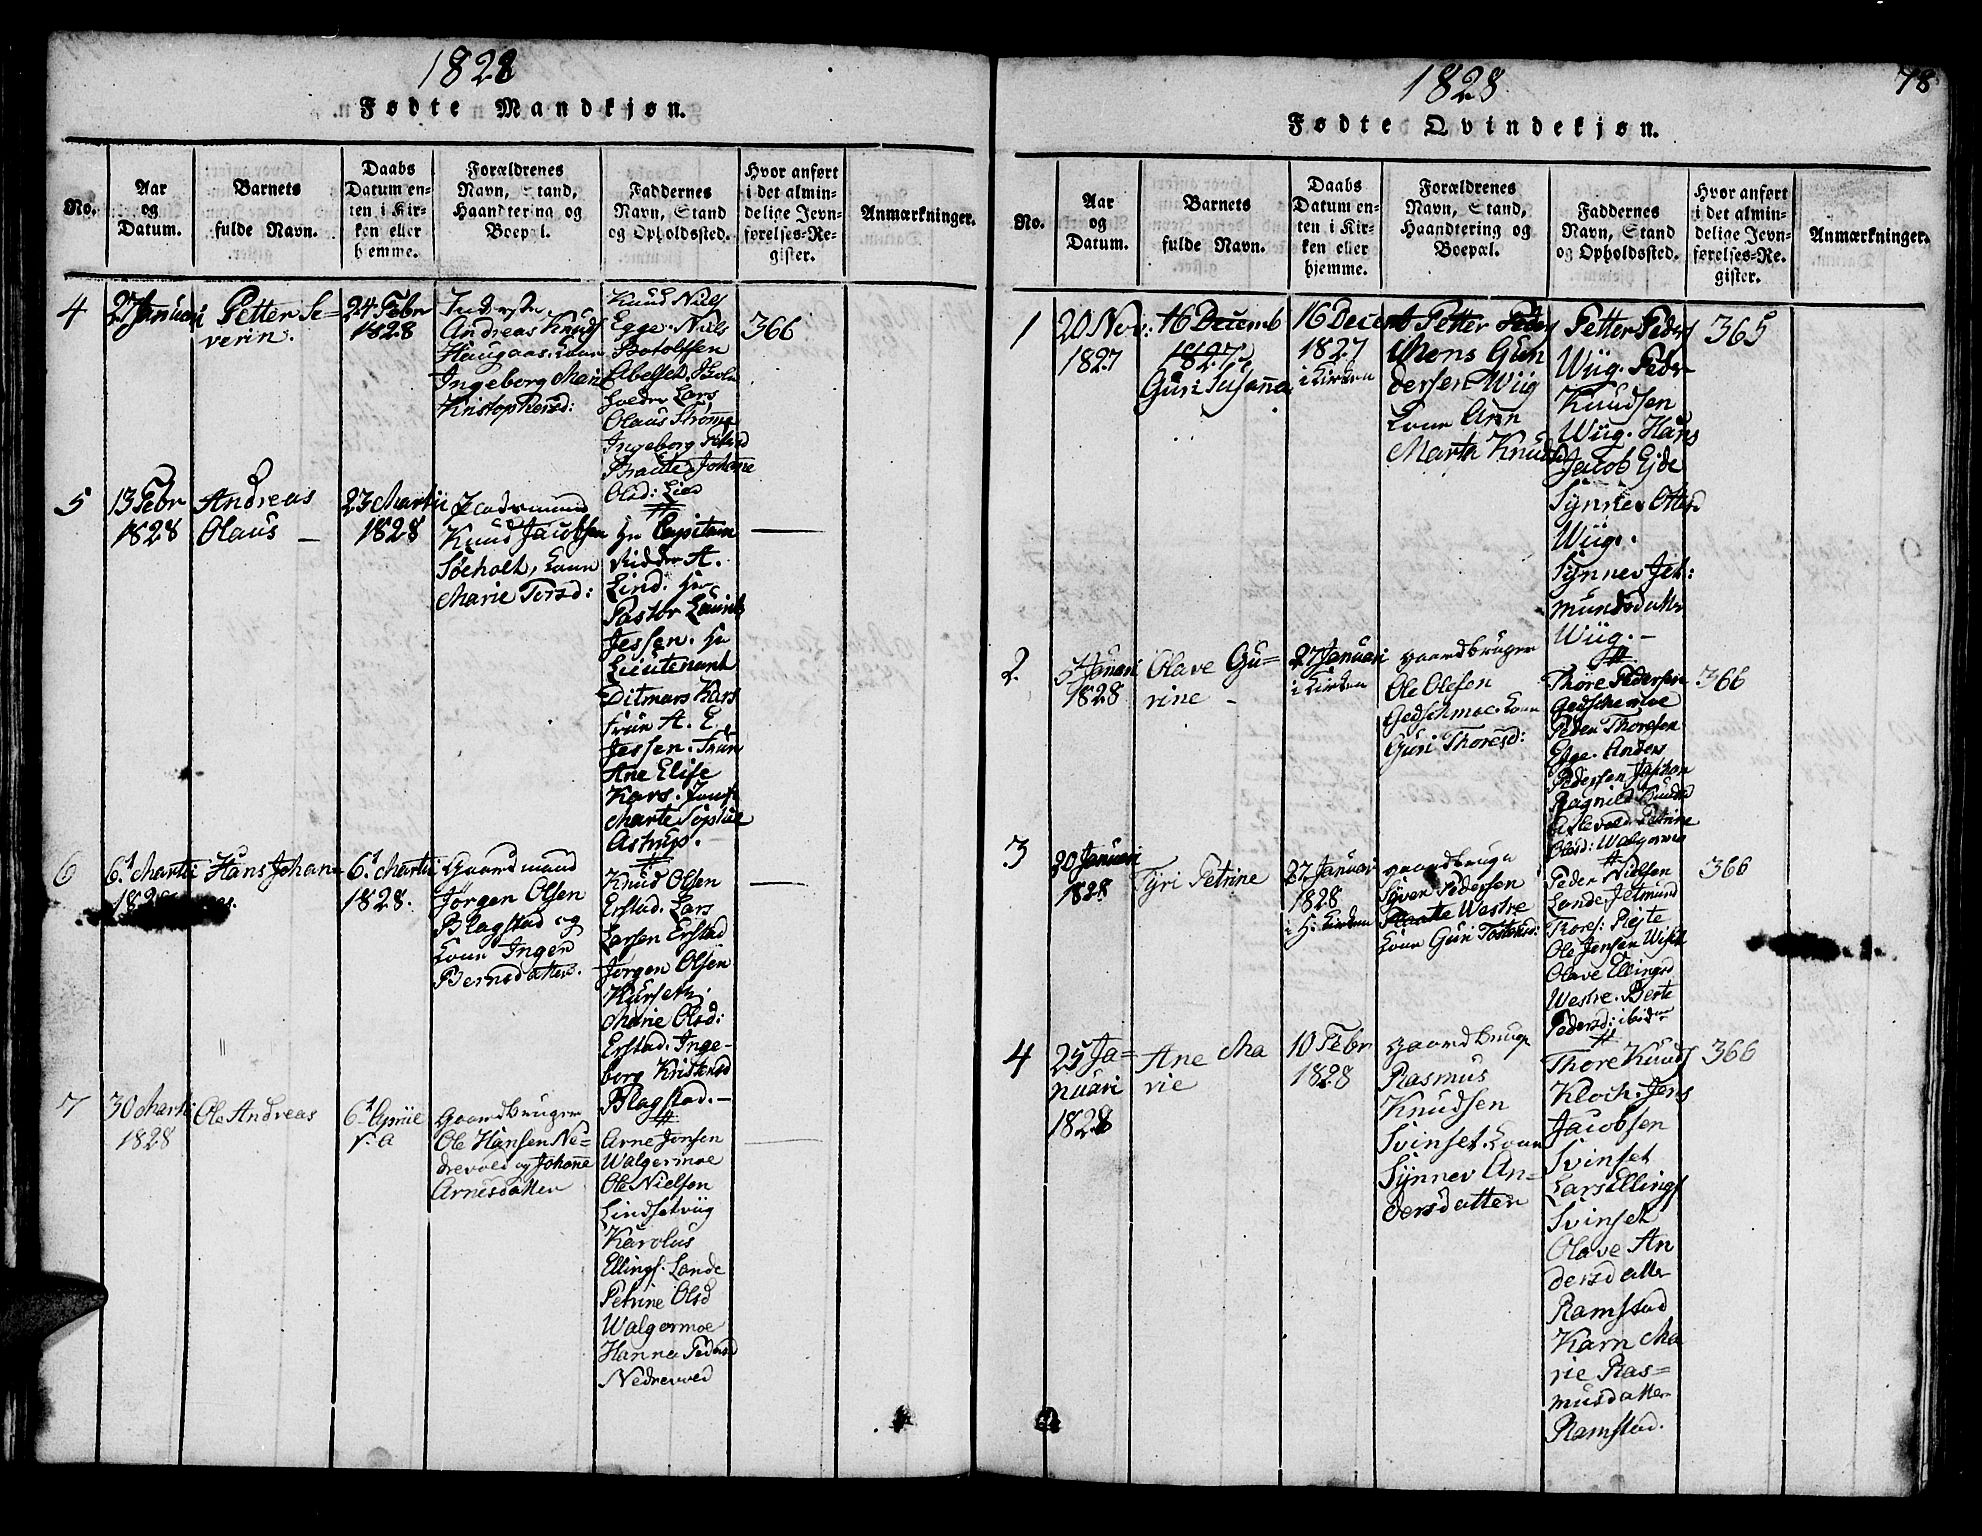 1828
Fødte Mandkjøn.
No.
Aar
og
Datum.
Barnets
fulde Navn.
Daabs
Datum en-
ten i Kir-
ken eller
hjemme.
Forældrenes
Navn, Stand,
Haandtering og
Boepæl.
Faddernes
Navn, Stand
og Opholdssted.
Hvor anført
i det almin-
delige Jevn-
førelses-Re-
gister.
Anmærkninger.
4
27 Januari
Petter Se-
verin.
24 Febr
1828
Inderste
Andreas Knuds
Haugaas. Kone
Ingeborg Marie
Kristophersd:
Knud Niels
Egge. Niels
Botolfsen
Abelset.
Lars
Olaus Strømme
Ingeborg
Johane
Olsd: Lied
366
5
13 Febr
1828
Andreas
Olaus –
23 Martii
1828
Knud Jacobsen
Søeholt, Kone
Marie Torsd:
Hr Capitain
Ridder A.
Lind. Hr
Pastor Laurits
Jessen. Hr
Lieutenant
Ditmars Kars
Frue A. E.
Jessen. Frue
Ane Elise
Kars. Jomf
Marte Sophie
Astrup.
6
6t Marti
1828
Hans Johan
6t Marti
1828.
Gaardmand
Jørgen Olsen
Blagstad og
Kone Inger
Berntsdatter.
Knud Olsen
Erstad. Lars
Larsen Erstad
Jørgen Olsen
Hurseth.
Marie Olsd:
Erstad. Inge-
borg Kristensd
Blagstad. –
7
30 Marti
1828
Ole Andreas
6t Apriil
s. a
Gaardbruger
Ole Hansen Ne-
drevold og Johanne
Arnesdatter
Arne Jonsen
Walgermoe
Ole Nielsen
Lindsetviig
Karolus
Ellings. Lande
Petrine Olsd
Walgermoe
Hanna Pedersd
Nedrevold
1828
78
Fødte Qvindekjøn.
No.
Aar
og
Datum.
Barnets
fulde Navn.
Daabs
Datum en-
ten i Kir-
ken eller
hjemme.
Forældrenes
Navn, Stand,
Haandtering og
Boepæl.
Faddernes
Navn, Stand
og Opholdssted.
Hvor anført
i det almin-
delige Jevn-
førelses-Re-
gister.
Anmærkninger.
1
20 Nov:
1827
16 Decemb
1827
Guri Susanna
16 Decemb
1827
i Kirken
Petter Peders
Mons Gun
dersen Wiig
Kone Ann
Marta Knudsd
Petter Peders
Wiig. Peder
Knudsen
Wiig. Hans
Jacob Eide
Synnev Ottersd
Wiig.
Synnev Jet:
mundsdatter
Wiig. –
365
2.
5 Januari
1828
Olave Gu-
rine –
27 Januari
i Kirken
gaardbruger
Ole Olesen
Gedschmoe. Kone
Guri Thoresd:
Thore Pedersen
Gedschemoe
Peder Thoresen
Egge. Anders
Pedersen
Ragnild Knudsd
Petrine
Olsd: Walgermoe
366
3
20 Januari
1828
Syri Petrine
27 Januari
1828
i H. Kirken
gaardbruge
Syver Pedersen
Westre
Kone Guri Tostensd:
Peder Nielsen
Lande. Jetmund
Thores:
Ole Jensen
Olave Ellingsd
Westre. Berte
Pedersd: ibidem
366
4
25 Ja-
nuari
1828
Ane Ma
rie
10 Febr
1828
gaardbruge
Rasmus
Knudsen
Svinset. Kone
Synnev An-
dersdatter
Thore Knuds
Kloch. Jens
Jacobsen
Svinset
Lars Ellings
Svinset
Olave An
dersdatter
Ramstad
Karn Ma
rie Ras-
musdatter
Ramstad.
366